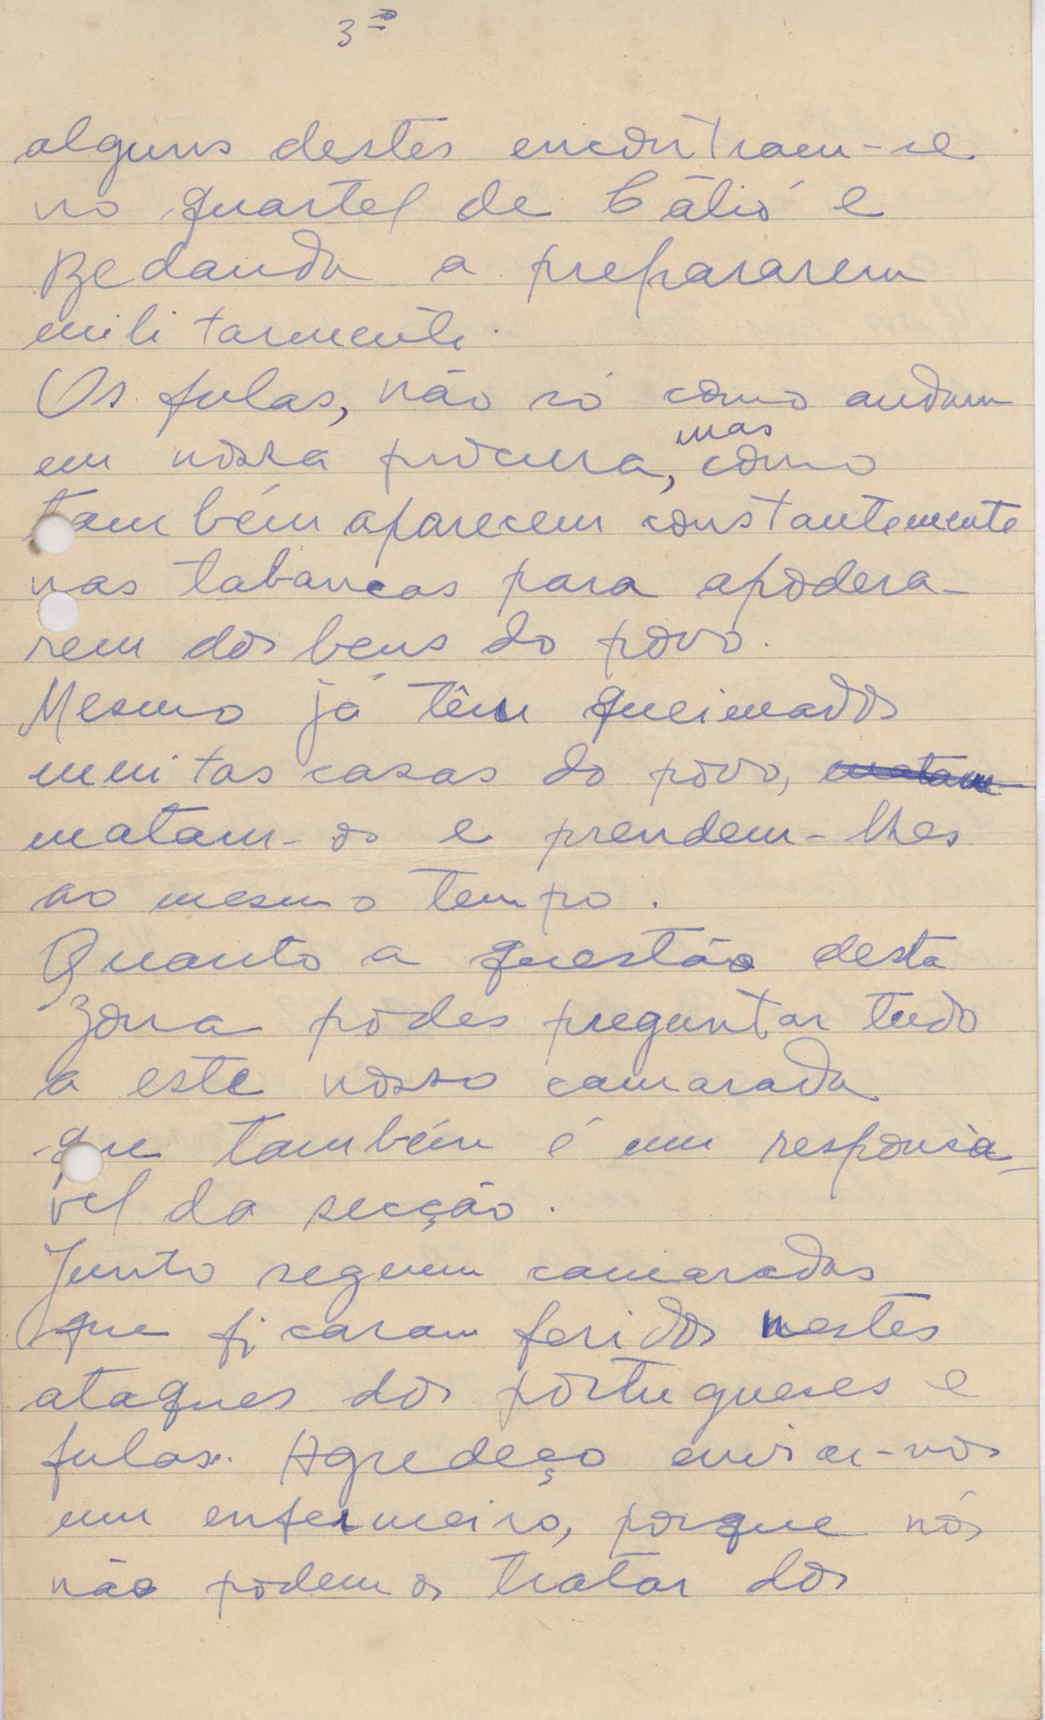 3º
alguns destes encontram-se
no quartel de Càtió e
Bedanda a prepararem
militarmente.
Os fulas, não só como andam
em nossa procura, mas como
também aparecem constantemente
nas tabancas para apodera-
rem dos bens do povo.
Mesmo já têm queimados
muitas casas do povo, matam
matam-os e prendem-lhes
ao mesmo tempo.
Quanto a questão desta
zona podes preguntar tudo
a este nosso camarada
que também é um responsà-
vel da secção.
Junto seguem camaradas
que ficaram feridos nestes
ataques dos portugueses e
fulas. Agredeço enviar-nos
um enfermeiro, porque nós
não podemos tratar dos